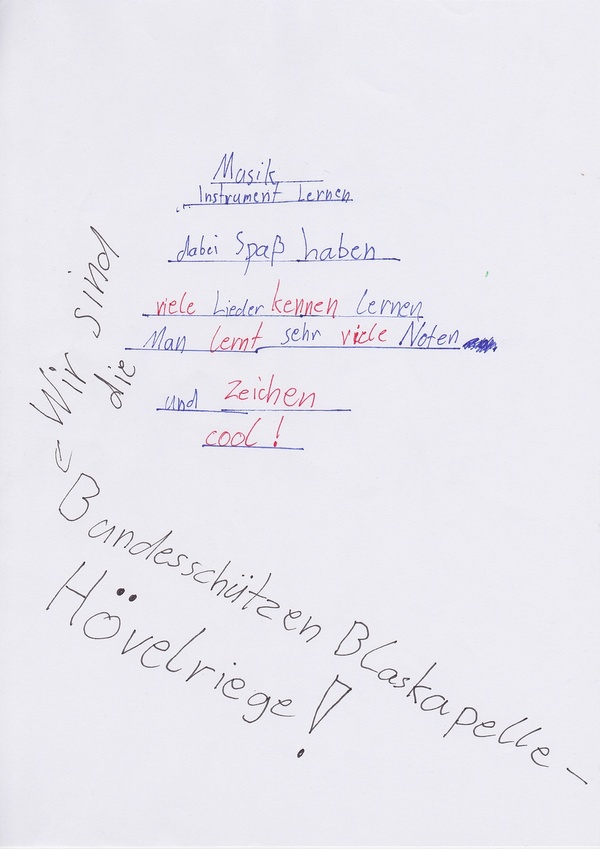 Musik
Instrument Lernen
dabei Spaß haben
viele Lieder kennen lernen
Man lernt sehr viele Noten
und Zeichen
cool!
Wir sind
die
Bundesschützen Blaskapelle-
Hövelriege!